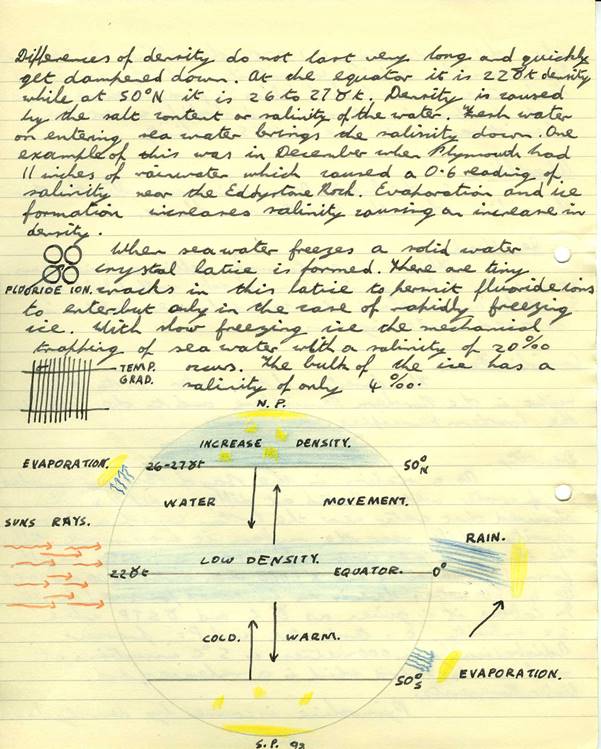 Differences of density do not last very long and quickly
get dampened down. At the equator it is 22γt density
while at 50°N it is 26 to 27γt. Density is caused
by the salt content or salinity of the water. Fresh water
on entering sea water brings the salinity down. One
example of this was in December when Plymouth had
11 inches of rainwater which caused a 0·6 reading of
salinity near the Eddystone Rock. Evaporation and ice
formation increases salinity causing an increase in
density.
When sea water freezes a solid water
crystal latice is formed. There are tiny
FLUORIDE ION. cracks in this latice to permit fluoride ions
to enter but only in the case of rapidly freezing
ice. With slow freezing ice the mechanical
trapping of sea water with a salinity of 20‰
TEMP. GRAD. occurs. The bulk of the ice has a
salinity of only 4‰.
N.P.
INCREASE DENSITY.
EVAPORATION. 26-27γt 50°N
WATER MOVEMENT.
SUNS RAYS. RAIN.
LOW DENSITY.
22γt EQUATOR. 0°
COLD. WARM.
50°S EVAPORATION.
S.P. 92